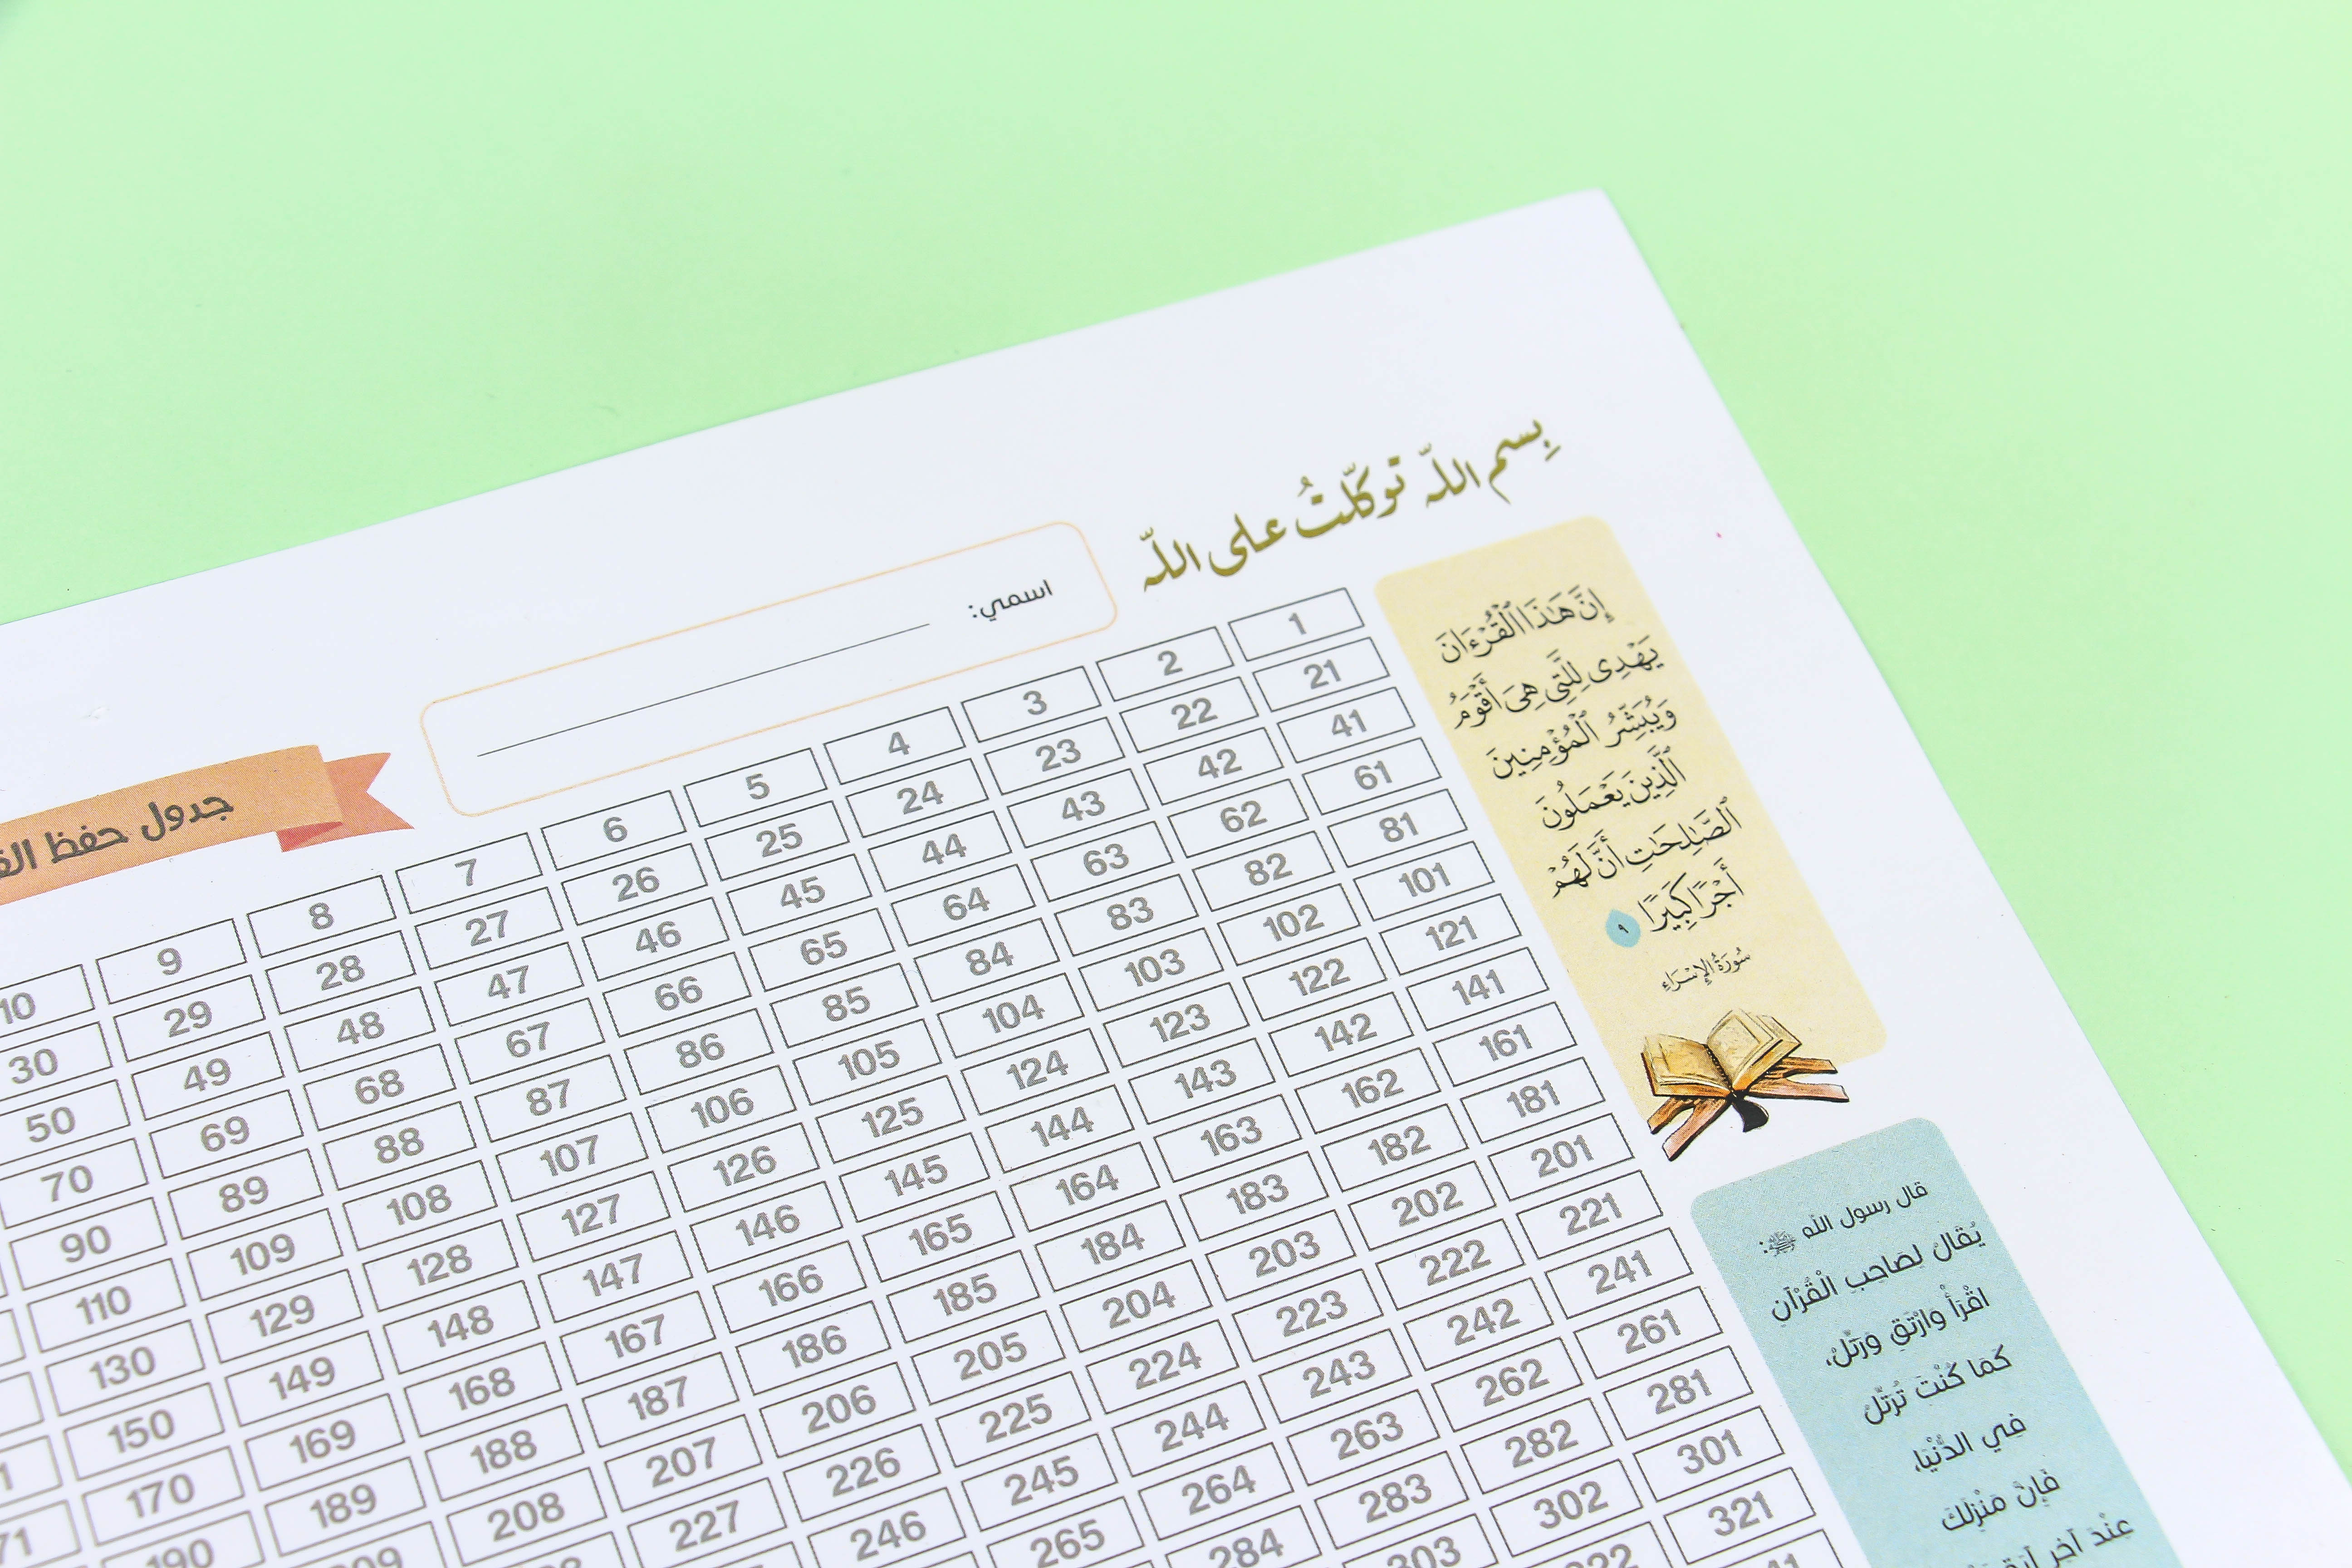 بِسم اللّه توكّلتُ على اللّه
اسمي:
جدول حفظ
1 2 3 4 5 6 7 8 9 10
21 22 23 24 25 26 27 28 29 30
41 42 43 44 45 46 47 48 49 50
61 62 63 64 65 66 67 68 69 70
81 82 83 84 85 86 87 88 89 90
101 102 103 104 105 106 107 108 109 110
121 122 123 124 125 126 127 128 129 130
141 142 143 144 145 146 147 148 149 150
161 162 163 164 165 166 167 168 169 170
181 182 183 184 185 186 187 188 189 190
201 202 203 204 205 206 207 208
221 222 223 224 225 226 227
241 242 243 244 245 246
261 262 263 264 265
281 282 283 284
301 302 303
321
إِنَّ هَٰذَا ٱلْقُرْءَانَ
يَهْدِى لِلَّتِى هِىَ أَقْوَمُ
وَيُبَشِّرُ ٱلْمُؤْمِنِينَ
ٱلَّذِينَ يَعْمَلُونَ
ٱلصَّٰلِحَٰتِ أَنَّ لَهُمْ
أَجْرًا كَبِيرًا ٩
سُورَةُ الإِسْرَاءِ
قال رسول الله ﷺ:
يُقَالُ لِصَاحِبِ الْقُرْآنِ
اقْرَأْ وَارْتَقِ وَرَتِّلْ،
كَمَا كُنْتَ تُرَتِّلُ
فِي الدُّنْيَا،
فَإِنَّ مَنْزِلَكَ
عِنْدَ آخِرِ